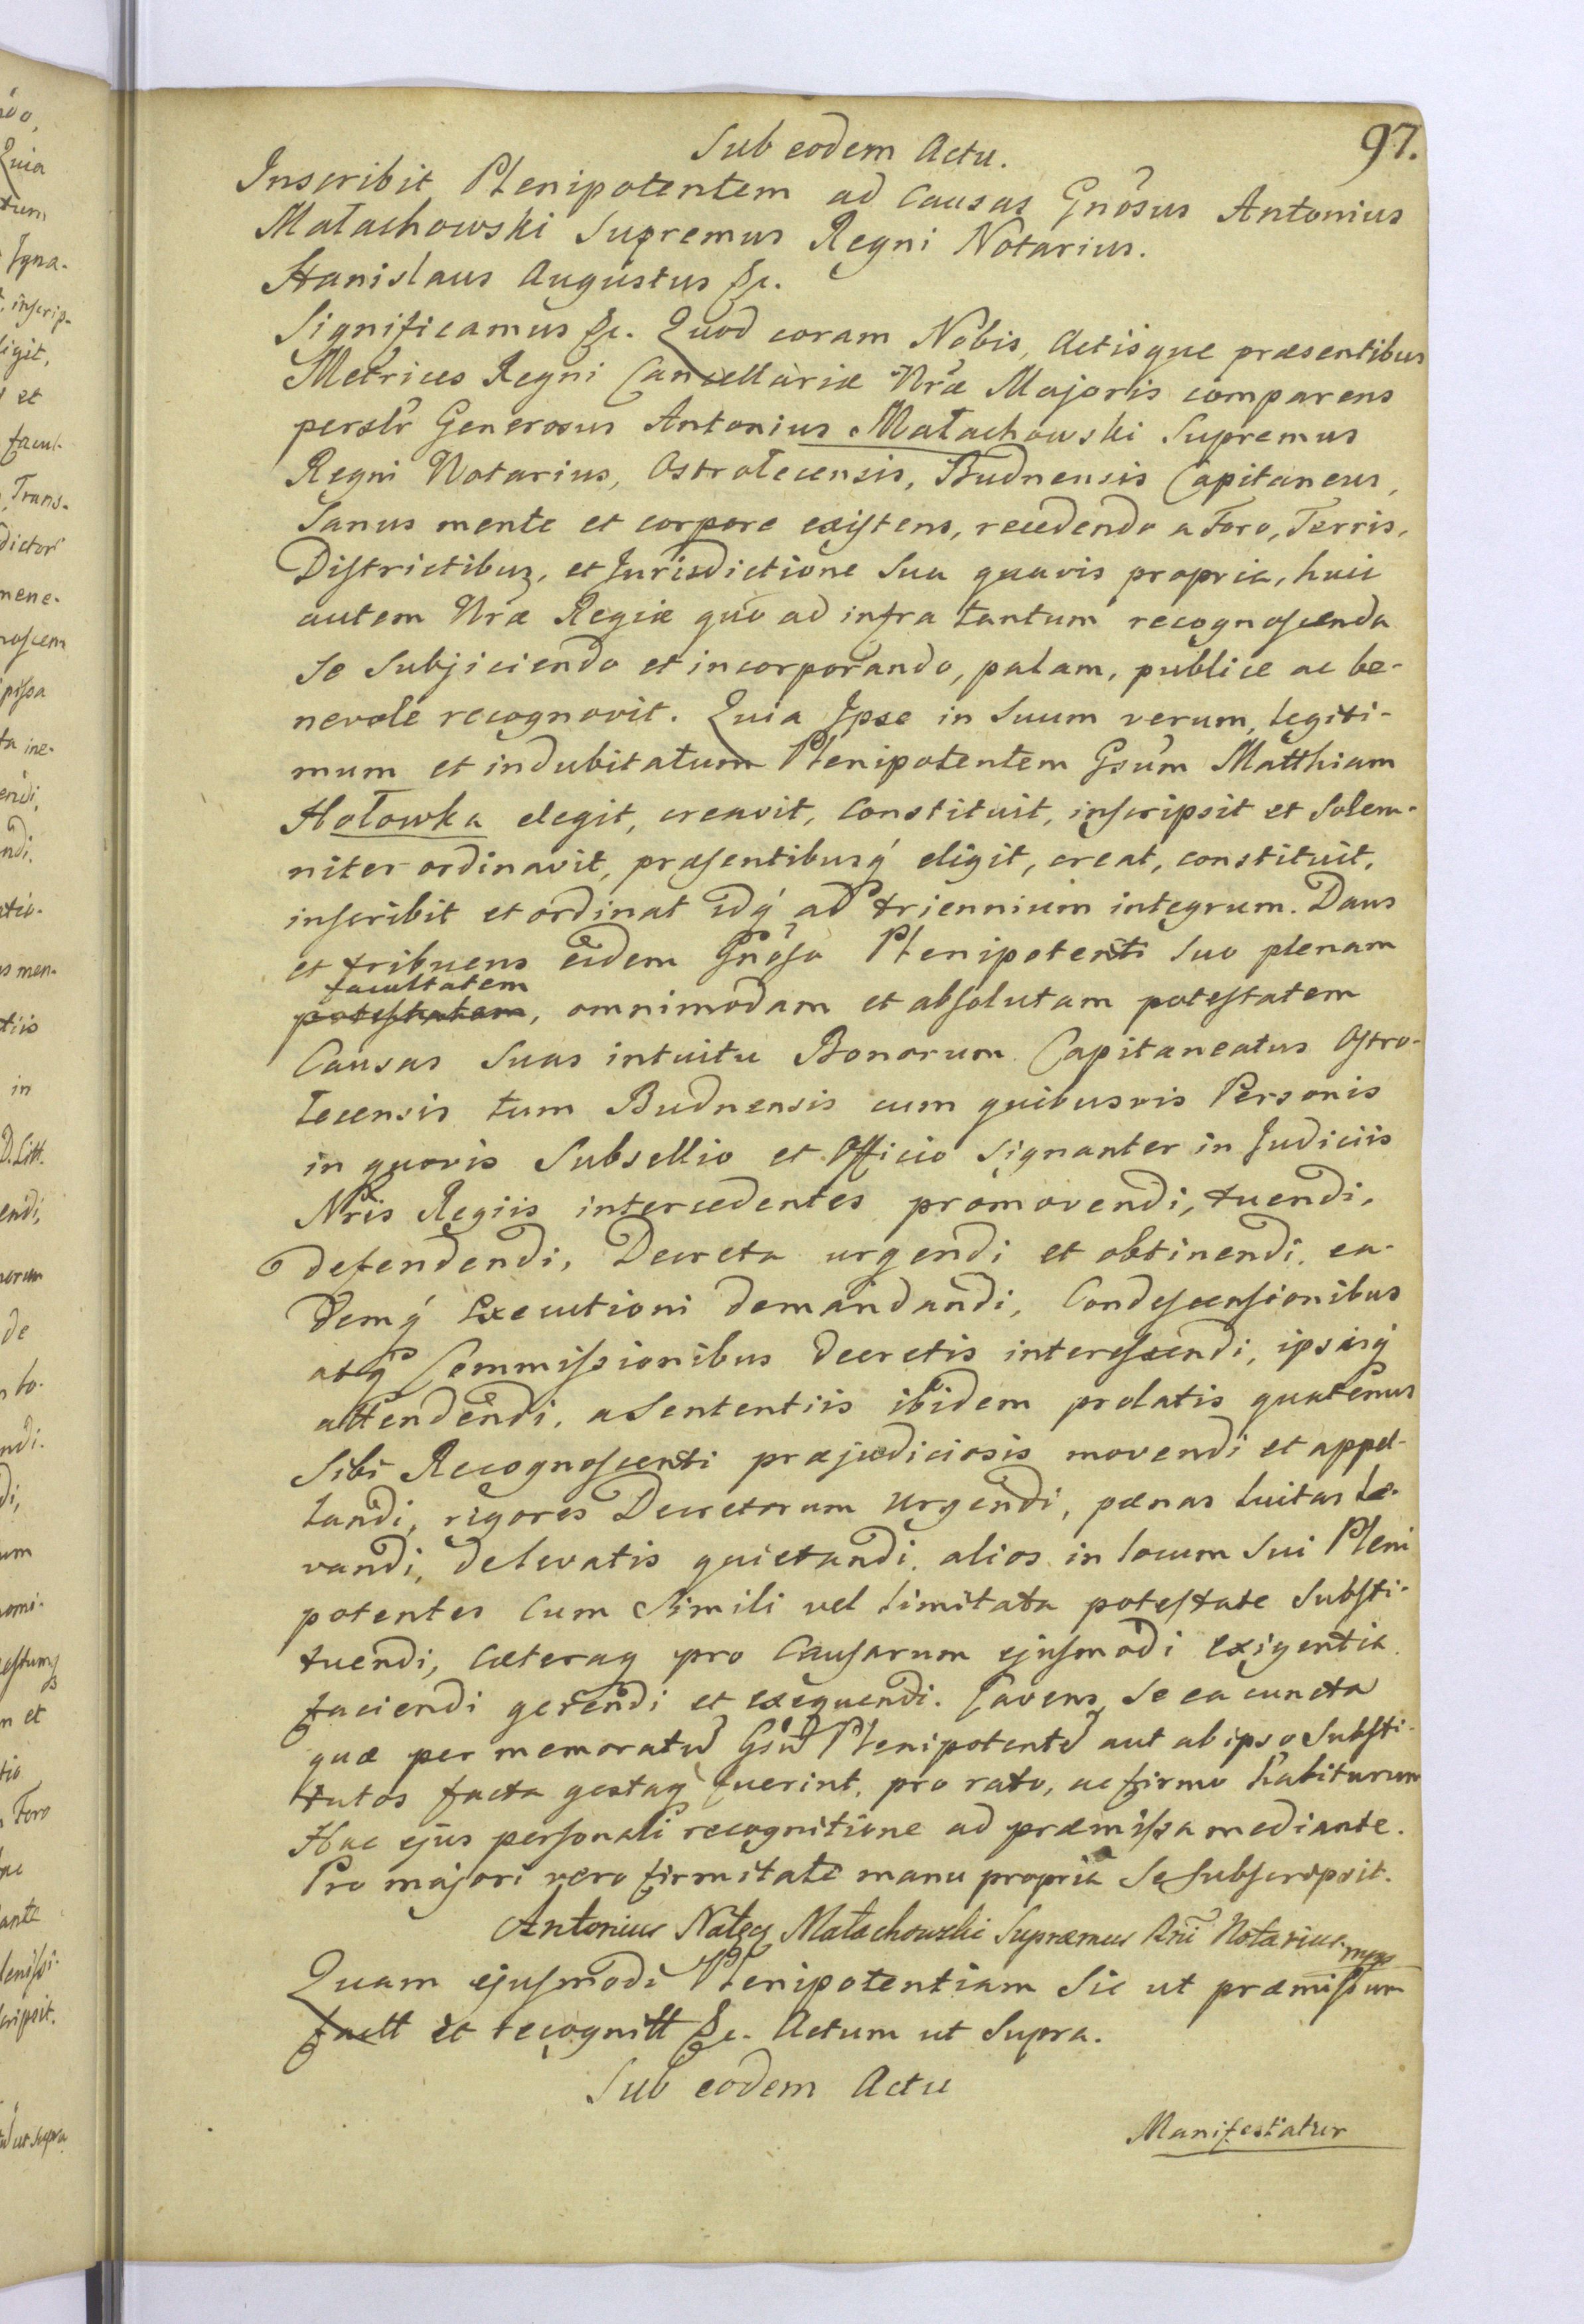 97.
Sub eodem Actu.
Inscribit Plenipotentem ad Causas Gnosus Antonius
Małachowski Supremus Regni Notarius.
Stanislaus Augustus &c.
Significamus &c. Quod coram Nobis, Actisque præsentibus
Metrices Regni Cancellariæ Nræ Majoris comparens
persolr Generosus Antonius Małachowski Supremus
Regni Notarius, Ostrołecensis, Budnensis Capitaneus,
Sanus mente et corpore existens, recedendo a Foro, Terris,
Districtibuz, et Jurisdictione Sua quavis propria, huic
autem Nræ Regiæ quo ad infra tantum recognoscenda
Se Subjiciendo et incorporando, palam, publice ac be-
nevole recognovit. Quia Ipse in Suum verum, legiti-
mum et indubitatum Plenipotentem Gsum Matthiam
Hołowka elegit, creavit, Constituit, inscripsit et Solem-
niter ordinavit, præsentibusq́ eligit, creat, constituit,
inscribit et ordinat idq́ ad triennium integrum. Dans
et tribuens eidem Gnoso Plenipotenti Suo plenam
facultatem
potestatem, omnimodam et absolutam potestatem
Causas Suas intuitu Bonorum Capitaneatus Ostro-
łecensis tum Budnensis cum quibusvis Personis
in quovis Subsellio et Officio Signanter in Judiciis
Nris Regiis intercedentes promovendi, tuendi,
defendendi, Decreta urgendi et obtinendi, ea-
demq́ Executioni demandandi, Condescensionibus
atq́ Commissionibus decretis interessendi, ipsisq́
attendendi, a Sententiis ibidem prolatis quatenus
Sibi Recognoscenti præjudiciosis movendi et appel-
landi, rigores Decretorum Urgendi, pænas luitas le-
vandi, delevatis quietandi, alios in locum Sui Pleni
potentes Cum Simili vel limitata potestate Substi-
tuendi, Cæteraq pro Causarum ejusmodi Exigentia
faciendi gerendi et exequendi. Cavens Se ea cuncta
quæ per memoratu Gsu Plenipotente aut ab ipso Substi-
tutos facta gestaq fuerint, pro rato, ac firmo habiturum
Hac ejus personali recognitione ad præmissa mediante.
Pro majori vero firmitate manu propria Se Subscripsit.
Antonius Nałęcz Małachowski Supræmus Rni Notarius mpp
Quam ejusmodi Plenipotentiam Sic ut præmissum
factt et recognitt &c. Actum ut Supra.
Sub eodem Actu
Manifestatur